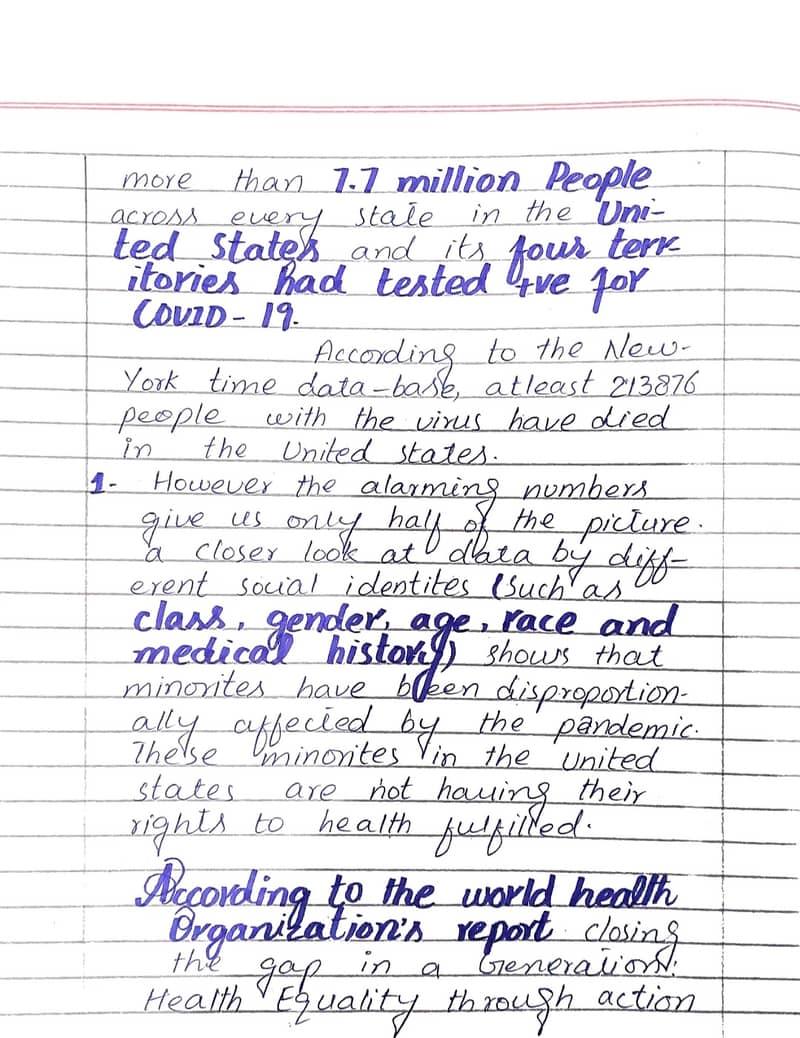 more than 7.7 million People
across every state in the Uni-
ted States and its four terr-
itories had tested +ve for
COVID-19.
According to the New-
York time data-base, atleast 213876
people with the virus have died
in the United states.
1- However the alarming numbers
give us only half of the picture.
a closer look at data by diff-
erent social identites (such as
class, gender, age, race and
medical history) shows that
minorites have been disproportion-
ally affected by the pandemic.
These minorites in the united
states are not having their
rights to health fulfilled.
According to the world health
Organization's report closing
the gap in a Generation:
Health Equality through action